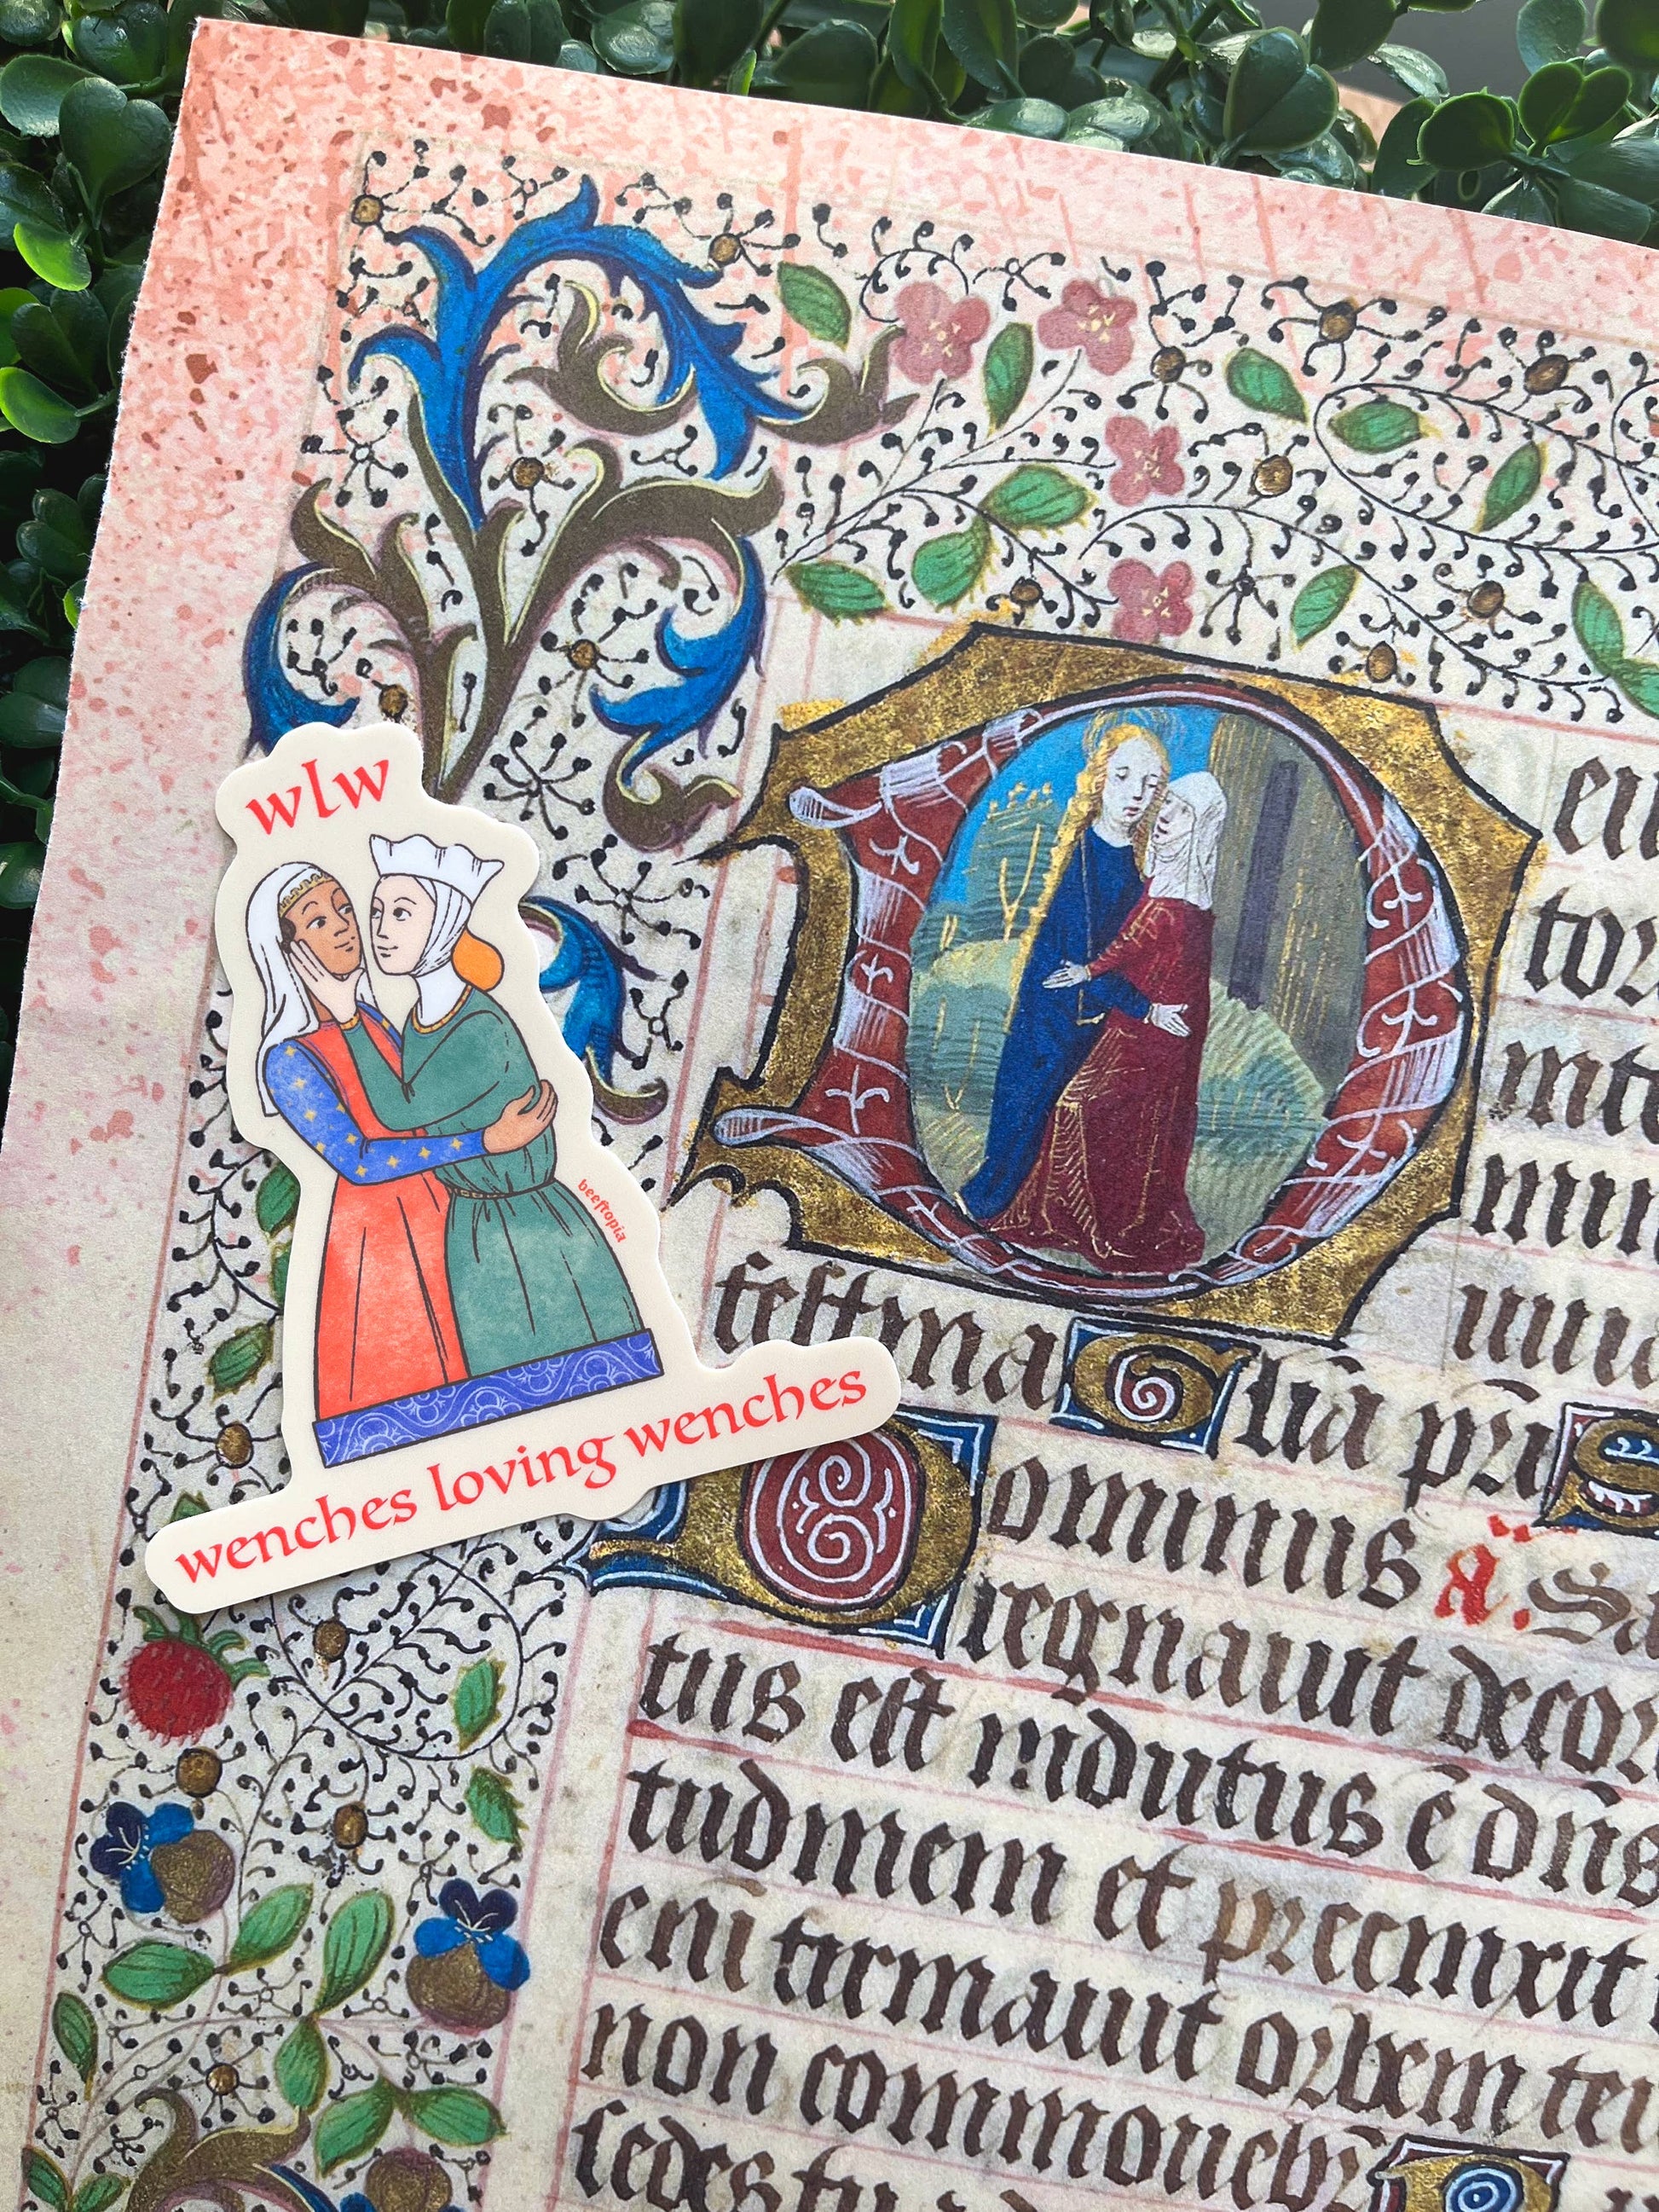 wlw
beeftopia
wenches loving wenches
eu
tor
inte
festina Glia pri S
Dominus a. Sa
regnauit decor
tus est indutus ē dñs
tudinem et precinxit
eni firmauit orbem ter
non commouebit
sedes tu